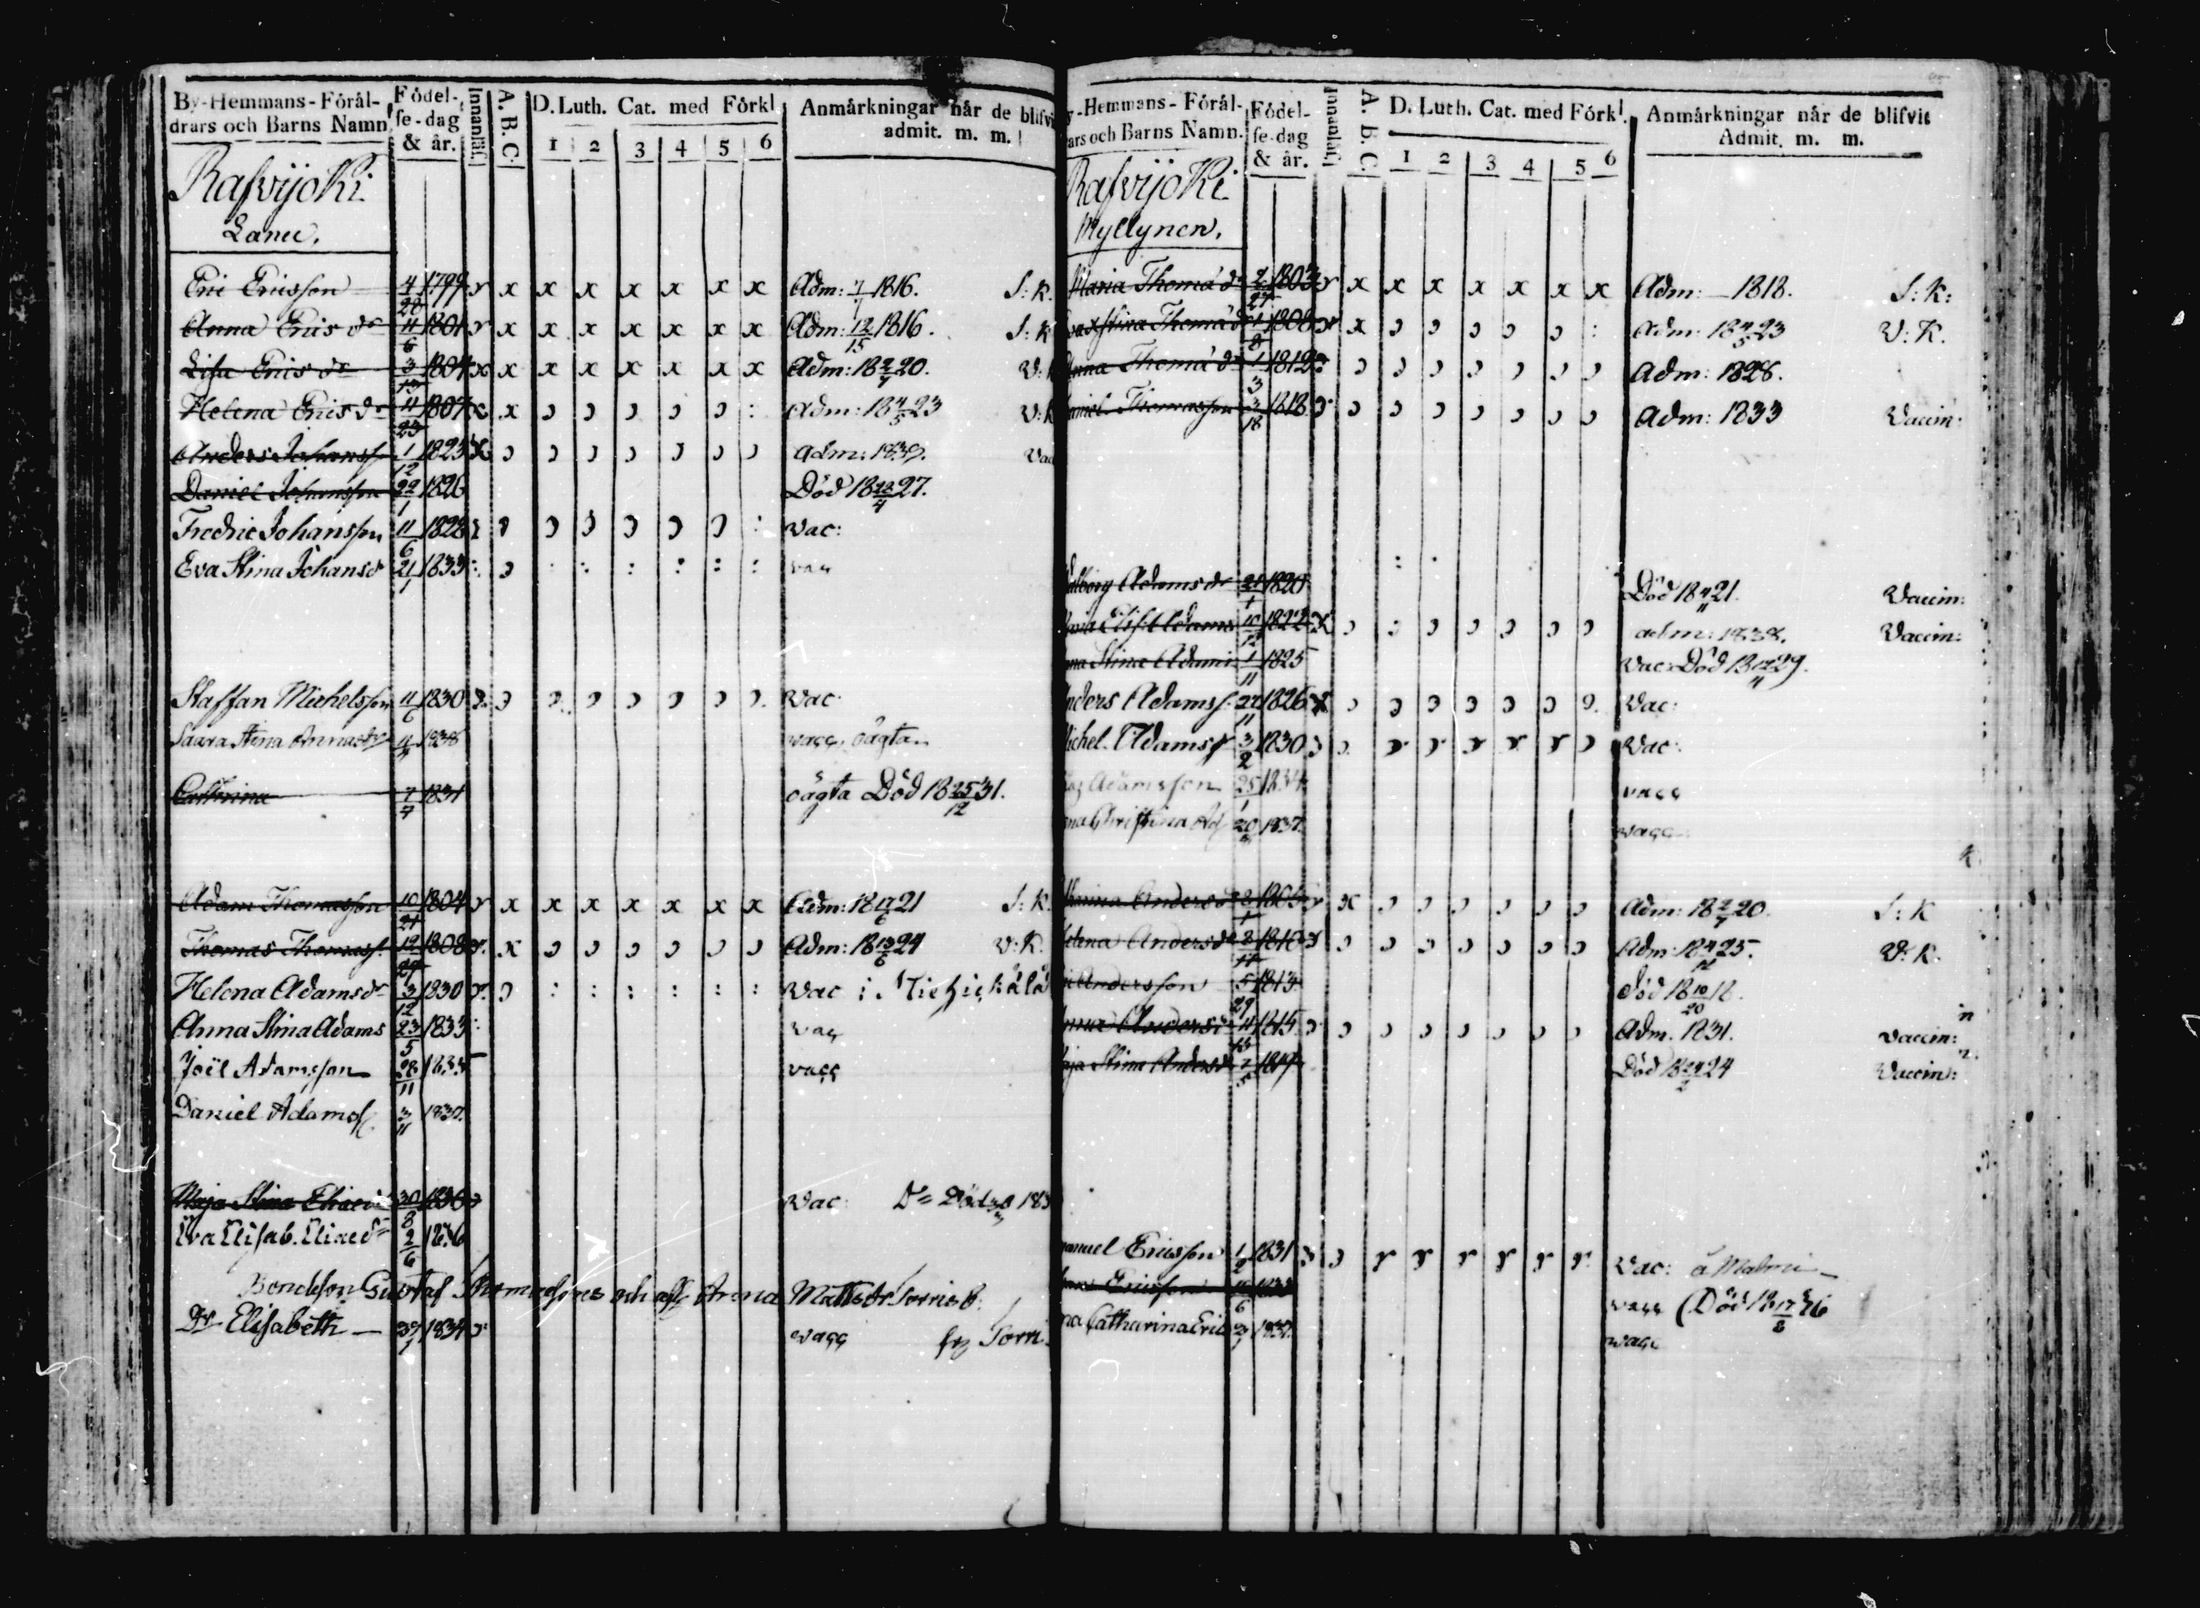 By-Hemmans-Förål-
drars och Barns Namn
Födel-
se-dag
& år.
Innanläs.
A. B. C.
D. Luth. Cat. med Förkl
1 2 3 4 5 6
Anmårkningar når de blifvi
admit. m. m.
Rafvijoki
Lanu.
Eric Ericsson 4/28 1799 x x x x x x x Adm: 7/7 1816. S: K.
Anna Erics dr 11/6 1801 x x x x x x x Adm: 12/15 1816. S: K
Lisa Erics dr 3/13 1804 x x x x x x x Adm: 18 2/7 20. V:
Helena Erics dr 11/23 1807 x Adm: 18 4/5 23 V: K
Anders Johanss 1/12 1823 Adm: 1839. Vac
Daniel Johansson 22/1 1826 Död 18 /4 27.
Fredric Johansson 11/6 1828 Vac:
Eva Stina Johansd 21/1 1833 vac
Staffan Michelsson 11/6 1830 Vac
Saara Stina Annasdr 1838 vacc. oägta
Cathrina 7/7 1831 oägta Död 18 25/12 31.
Adam Thomasson 10/21 1804 x x x x x x x Adm: 18 /6 21 S: K.
Thomas Thomass. 12/27 1808 x Adm: 18 13/6 24 V: K.
Helena Adamsdr 3/12 1830 Vac i
Anna Stina Adams 23/5 1833 vac
Joël Adamsson 28/11 1835 vacc
Daniel Adamss 3/11 1837.
Maja Stina Eliaed 30/8 1830 Vac: Död 183
Eva Elisab. Eliaedr 2/6 1836
Bondeson Gustaf Thomassons och Anna Mattsdr Torris B.
Dr Elisabeth 1834 vacc Torri
-Hemmans-Förål-
ars och Barns Namn.
Födel-
se-dag
& år.
Innanläs.
A. B. C.
D. Luth. Cat. med Förkl.
1 2 3 4 5 6
Anmårkningar når de blifvit
Admit. m. m.
Rafvijoki
Myllynen.
Maria Thomædr 2/27 1803 x x x x x x x Adm: 1818. S: K:
Stina Thomædr 1/8 1808 x Adm: 18 4/5 23 V: K.
Anna Thomædr 1/3 1812 Adm: 1828.
aniel Thomasson 3/18 1818 Adm: 1833 Vaccin:
alborg Adamsdr 21/1 1820 Död 18 4/11 21. Vaccin:
Elis: Adams 10/12 1822 adm: 1838. Vaccin:
nna Stina Adams 1/11 1825 Vac: Död 18 /11 29.
nders Adamss. 22/11 1826 Vac:
ichel Adamss 3/2 1830 Vac:
Adamsson 25/1 1834 vacc
na Christina Ad 20 1837. vacc
tharina Andersd 1805 x Adm: 18 2/7 20. S: K
elena Andersdr 8/11 1810 Adm: 18 4/12 25. V: K.
Andersson 5/29 1813 Död 18 10/20 18.
nna Andersd 4/13 1815 Adm. 1831. Vaccin:
aja Stina Andersd 7/5 1819 Död 18 /2 24 Vaccin:
anuel Ericsson 1/2 1831 Vac: å Malmi
Ericsson 6 vacc (Död 18 17/8 36
na Catharina Eric 3/1 1837. vacc